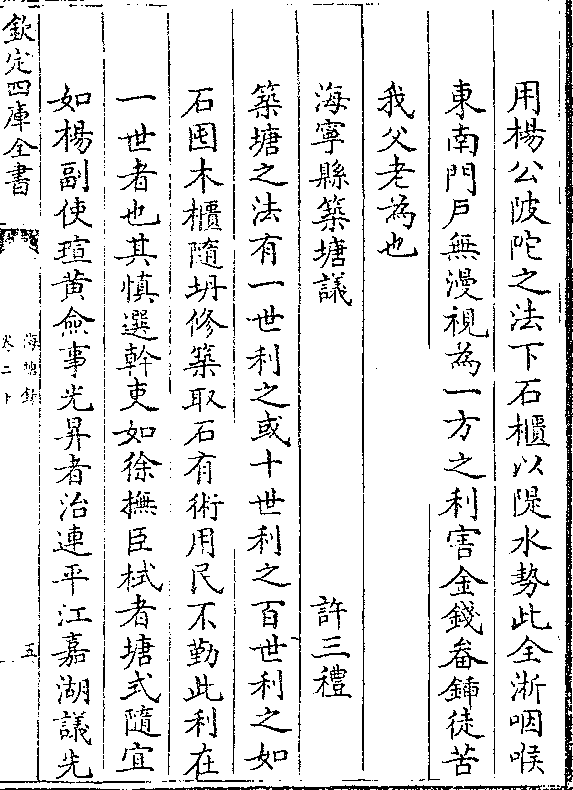 用楊公陂陀之法下石櫃以隄水勢此全淅咽喉
東南門戸無漫視為一方之利害金錢畚鍤徒苦
我父老為也
海寧縣築塘議 許三禮
築塘之法有一世利之或十世利之百世利之如
石囤木櫃隨坍修築取石有術用民不勤此利在
一世者也其慎選幹吏如徐撫臣栻者塘式隨宜
如楊副使瑄黄僉事光昇者治連平江嘉湖議先
欽定四庫全書
海塘録
卷二下
五